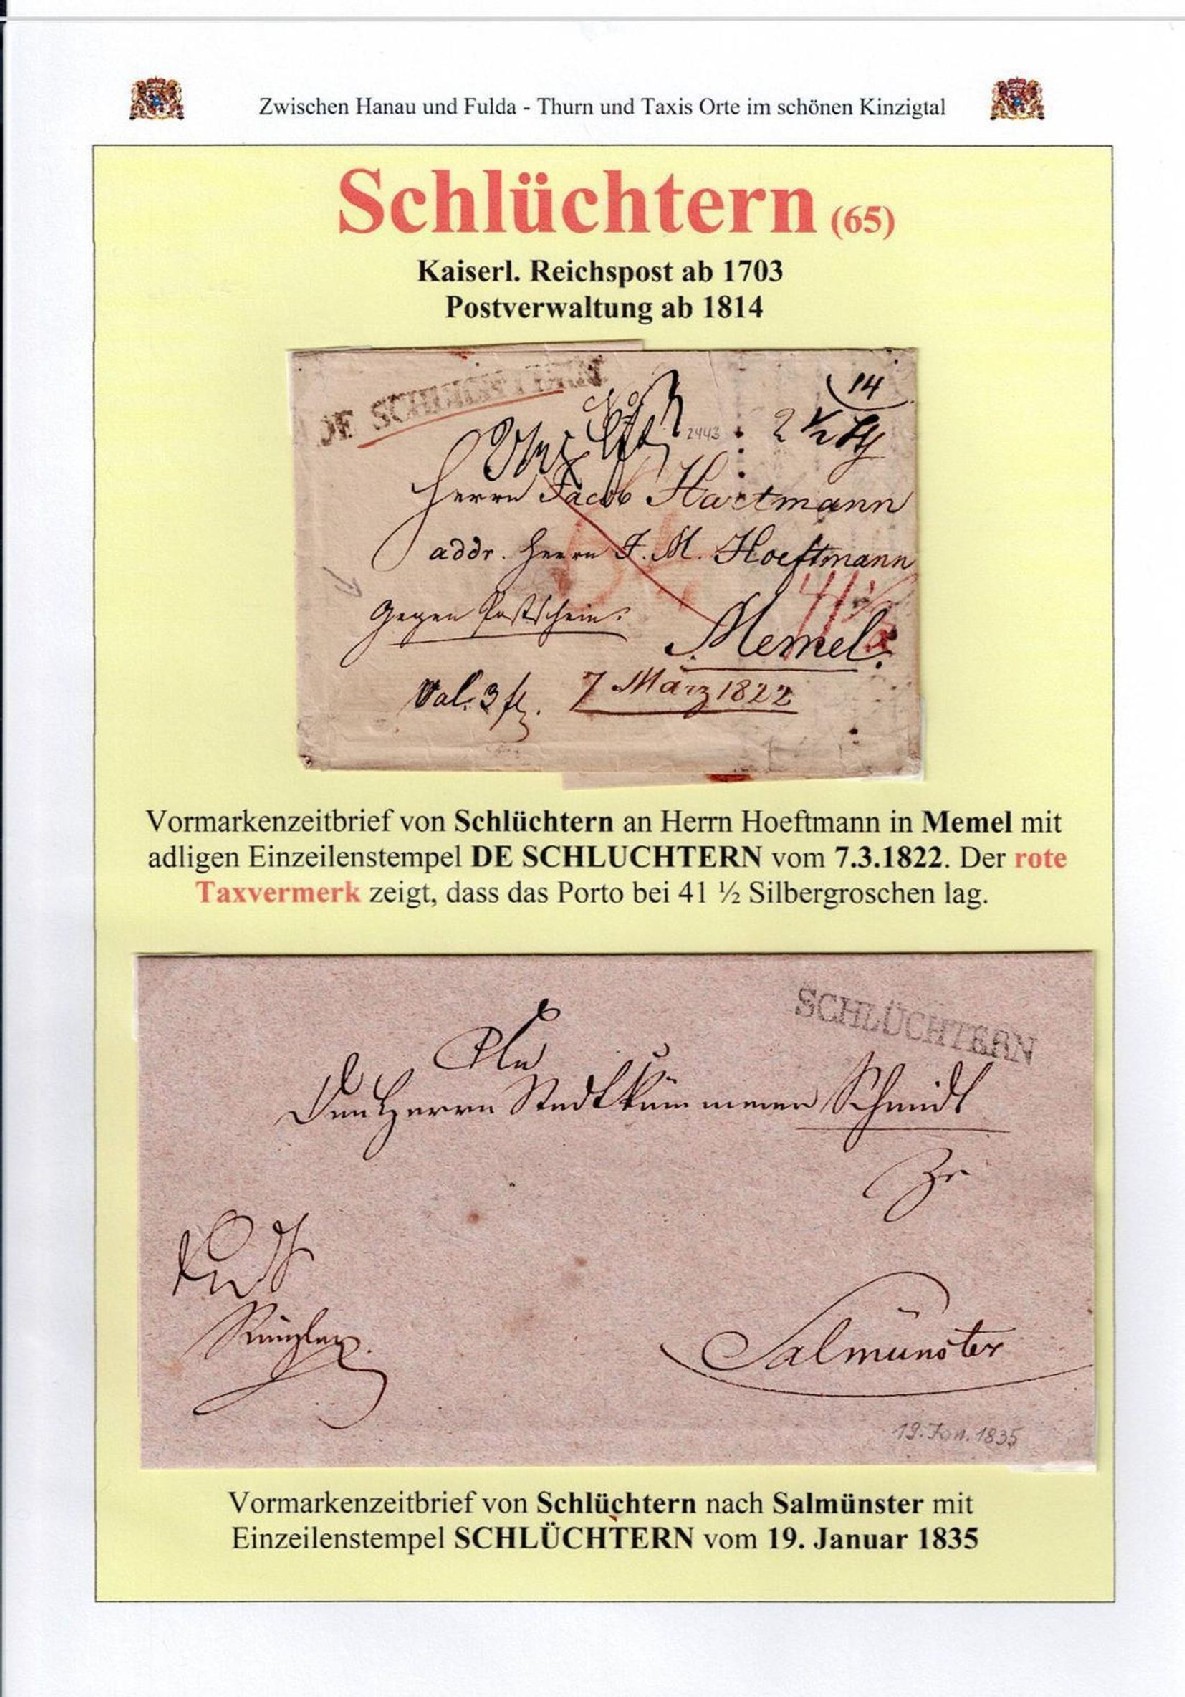 Zwischen Hanau und Fulda - Thurn und Taxis Orte im schönen Kinzigtal
Schlüchtern (65)
Kaiserl. Reichspost ab 1703
Postverwaltung ab 1814
DE SCHLUCHTERN
14
2443
2 ½
Herrn Jacob Hartmann
addr. Herrn J. M. Hoeftmann
41 ½
Gegen Postschein.
Memel.
Val. 3 fl.
7 März 1822
Vormarkenzeitbrief von Schlüchtern an Herrn Hoeftmann in Memel mit
adligen Einzeilenstempel DE SCHLUCHTERN vom 7.3.1822. Der rote
Taxvermerk zeigt, dass das Porto bei 41 ½ Silbergroschen lag.
SCHLÜCHTERN
An
Den Herrn Stadtkämmerer Schmidt
Zu
Salmünster
19. Jan. 1835
Vormarkenzeitbrief von Schlüchtern nach Salmünster mit
Einzeilenstempel SCHLÜCHTERN vom 19. Januar 1835